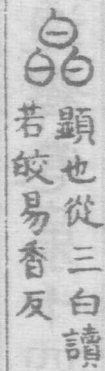 皛
顯也從三白讀
若皎易香反